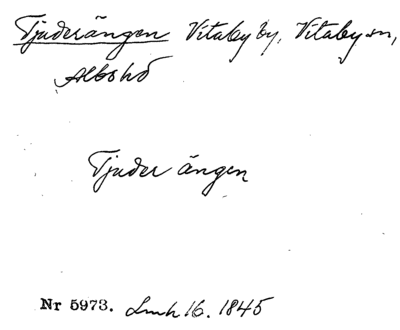 Tjuderängen Vitaby by, Vitaby sn,
Albo hd
Tjuder ängen
Nr 5973. Lmh 16. 1845